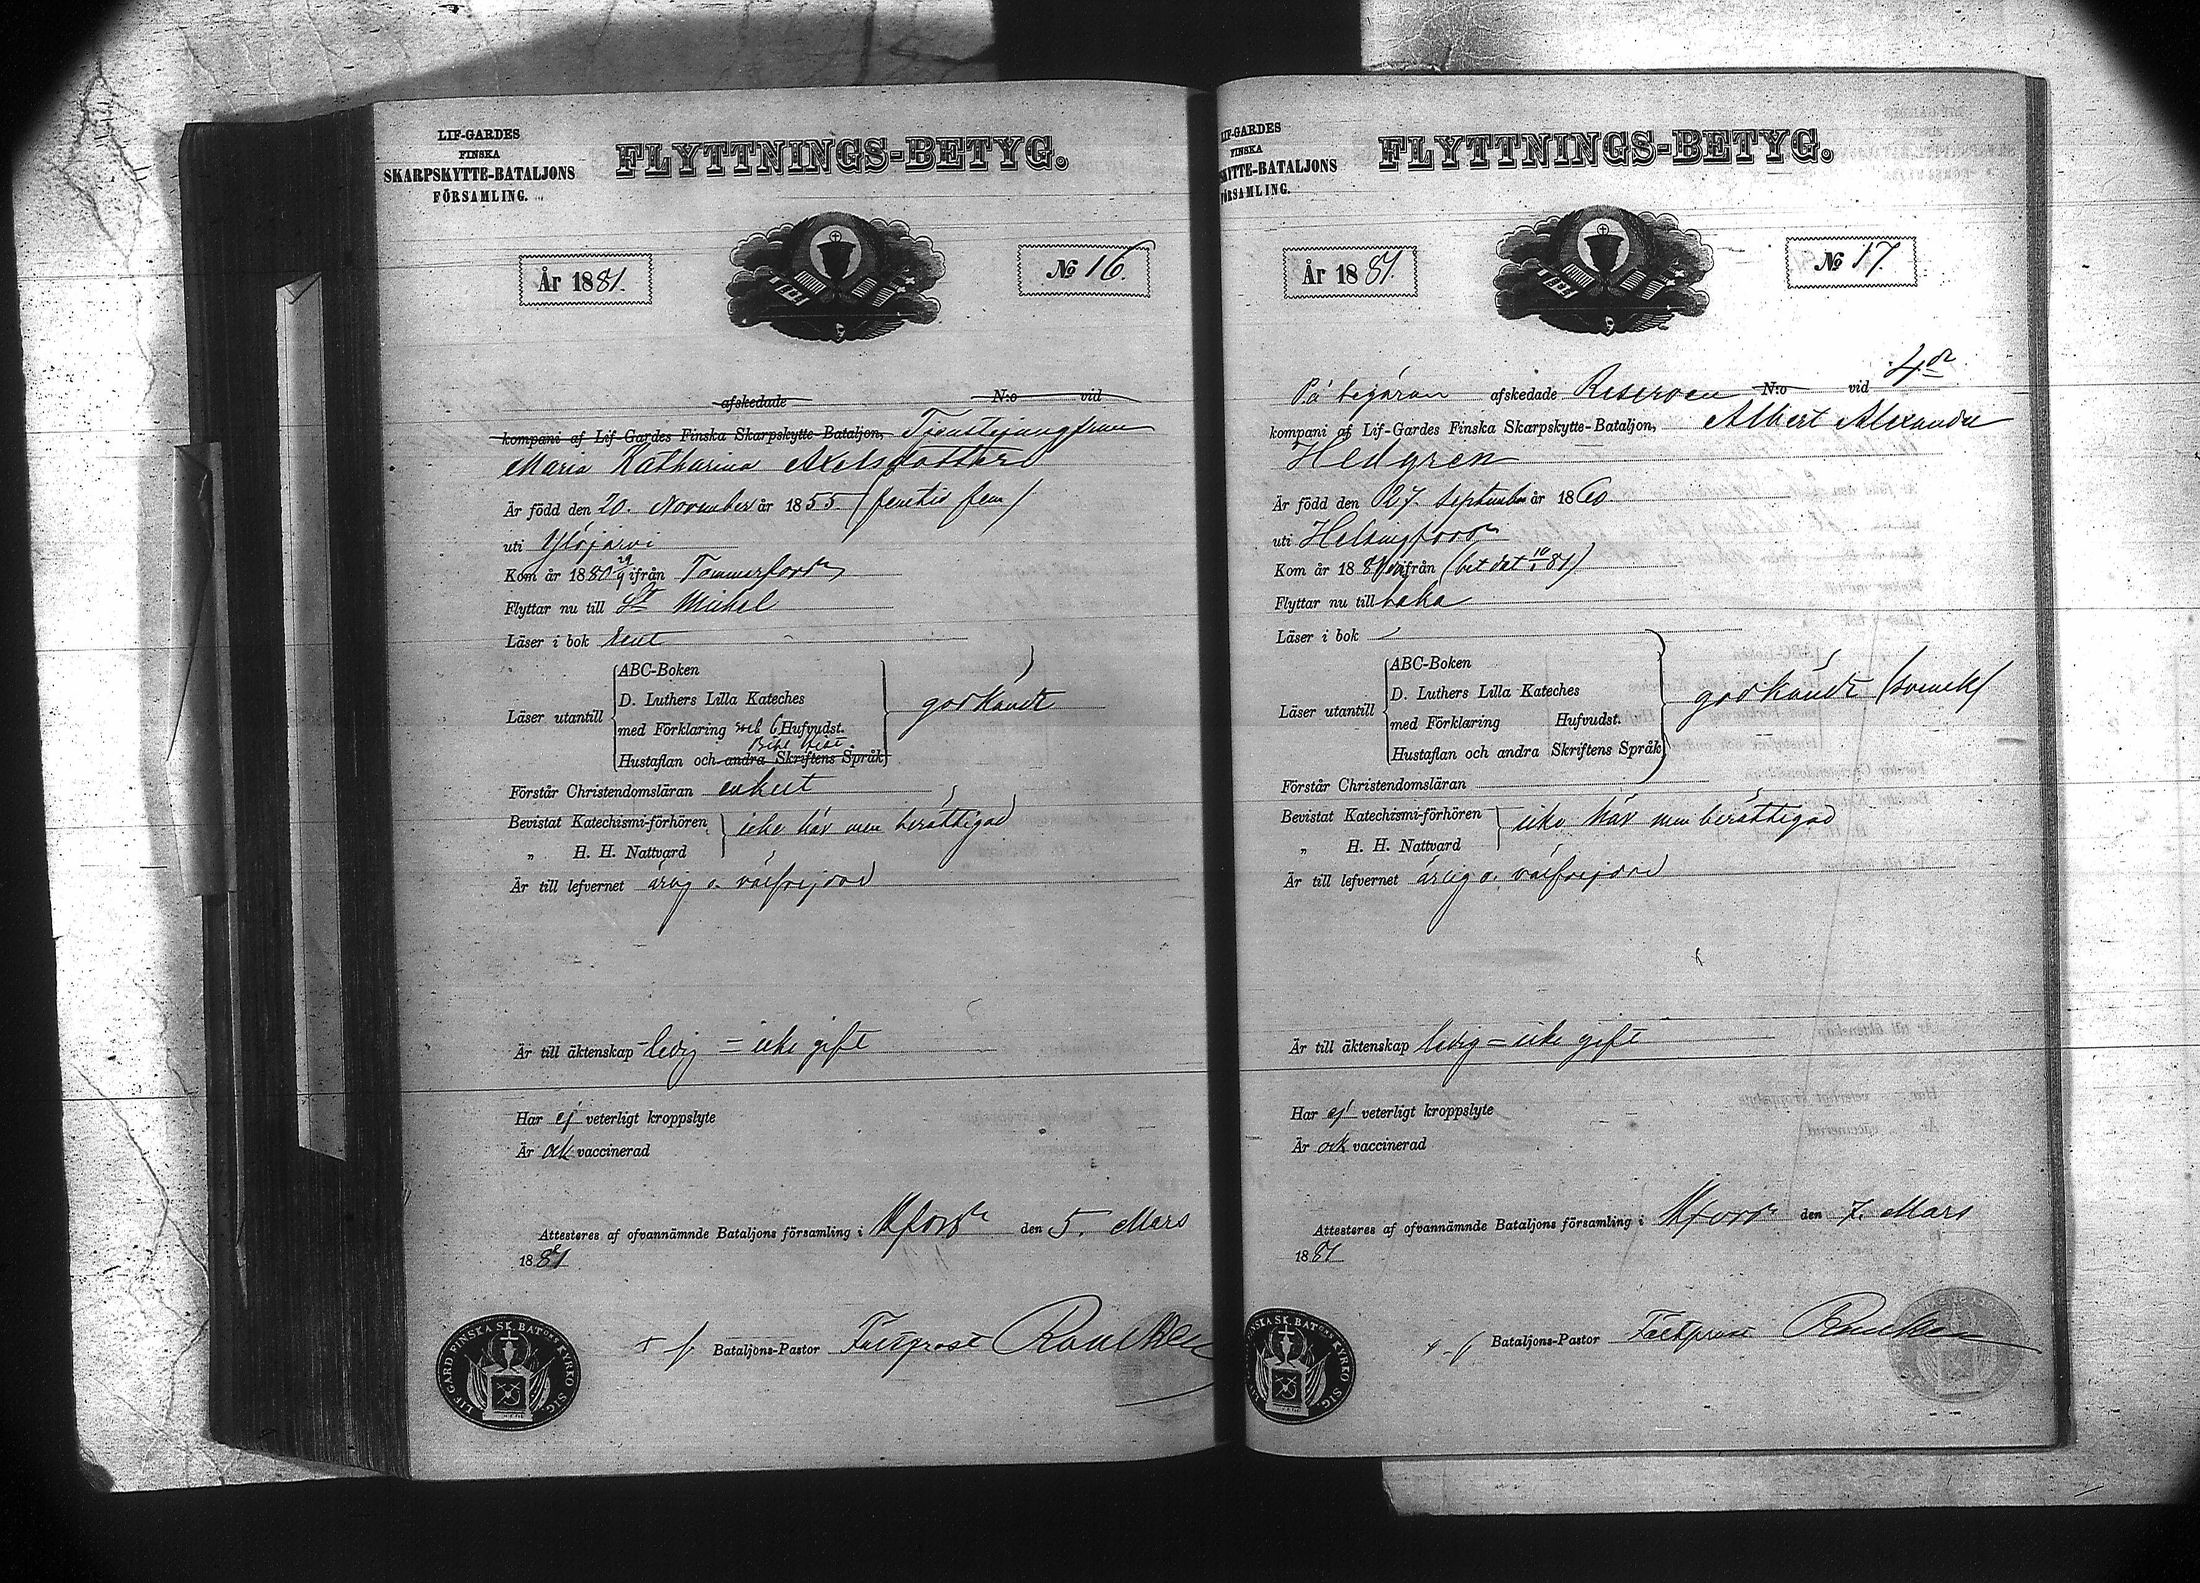 LIF-GARDES
FINSKA
SKARPSKYTTE-BATALJONS
FÖRSAMLING.
FLYTTNINGS-BETYG.
År 1881.
No 16.
afskedade N:o vid
kompani af Lif-Gardes Finska Skarpskytte-Bataljon, Tjenstejungfrun
Maria Katharina Axelsdotter
Är född den 20. November år 1855 (femtio fem)
uti Ylöjärvi
Kom år 1880 ifrån Tammerfors
Flyttar nu till St Michel
Läser i bok rent
ABC-Boken
D. Luthers Lilla Kateches
Läser utantill godkändt
med Förklaring Hufvudst.
Bibl. hist.
Hustaflan och andra Skriftens Språk
Förstår Christendomsläran enkelt
Bevistat Katechismi-förhören icke här men berättigad
„ H. H. Nattvard
Är till lefvernet ärlig o. välfrejdad
Är till äktenskap ledig = icke gift
Har ej veterligt kroppslyte
Är ock vaccinerad
Attesteres af ofvannämnde Bataljons församling i Hfors den 5. Mars
1881
LIF GARD. FINSKA SK. BATONS KYRKO SIG.
Bataljons-Pastor Fältprost
LIF-GARDES
FINSKA
SKYTTE-BATALJONS
FÖRSAMLING.
FLYTTNINGS-BETYG.
År 1881.
No 17.
På begäran afskedade Reserven N:o vid 4de
kompani af Lif-Gardes Finska Skarpskytte-Bataljon, Albert Alexander
Hedgren
Är född den 27. September år 1860
uti Helsingfors
Kom år 1881 ifrån (bet dat 10/1 81)
Flyttar nu till
Läser i bok
ABC-Boken
D. Luthers Lilla Kateches
Läser utantill godkändt (svensk)
med Förklaring Hufvudst.
Hustaflan och andra Skriftens Språk
Förstår Christendomsläran
Bevistat Katechismi-förhören icke här men berättigad
„ H. H. Nattvard
Är till lefvernet ärlig o. välfrejdad
Är till äktenskap ledig = icke gift
Har ej veterligt kroppslyte
Är ock vaccinerad
Attesteres af ofvannämnde Bataljons församling i Hfors den 7. Mars
1881
SKA SK. BATONS KYRKO SIG.
Bataljons-Pastor Fältprost